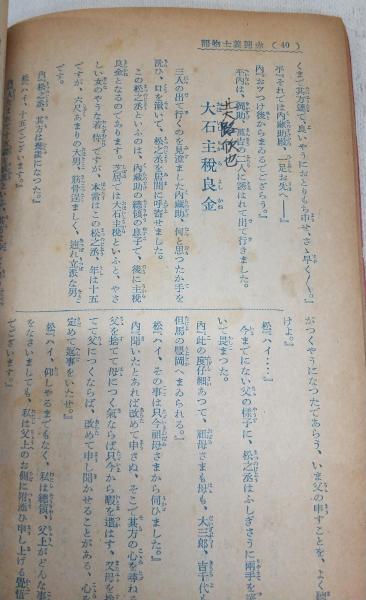 (40) 赤穂義士物語
くまで其方達で、良いやうにおとりもち申せ、さ、早く〳〵。』
平『それでは内蔵助殿、一足お先へ――』
内『おツつけ後からまゐるでござらう。』
平内は、源助、萬吉二人に誘はれて出て行きました。
大石主税良金
三人の出て行くのを見澄ました内蔵助、何と思つたか手を
洗ひ、口を漱いで、松之丞を居間に呼寄せました。
この松之丞といふのは、内蔵助の總領の息子で、後に主税
良金となるのであります。芝居では大石主税といふと、やさ
しい女のやうな着物ですが、本當はこの松之丞、年は十五
ですが、六尺あまりの大男、筋骨逞ましく、遖れ立派な男
です。
内『松之丞、其方は幾歳になつた。』
松『ハイ、十五でございます。』
がつくやうになつたであらう、いま父の申すことを、よく
けよ。』
松『ハイ……』
今までにない父の様子に、松之丞はふしぎさうに兩手を
いて畏まつた。
内『此の度仔細あつて、祖母さまも母も、大三郎、吉千代も
但馬の豊岡へまゐられる。』
松『ハイ、その事は只今祖母さまから伺ひました。』
内『聞いたとあれば改めて申さぬ、そこで其方の心を尋ねる
父を捨てて母につく氣ならば只今から暇を遣はす、又母を捨
てて父につくならば、改めて申し聞かせることがある、心を
定めて返事をいたせ。』
松『ハイ、仰しやるまでもなく、私は總領、父上がどんな事
をなさいましても、私は父上のお側に附添ひ申し上げる覺悟
でございます。』